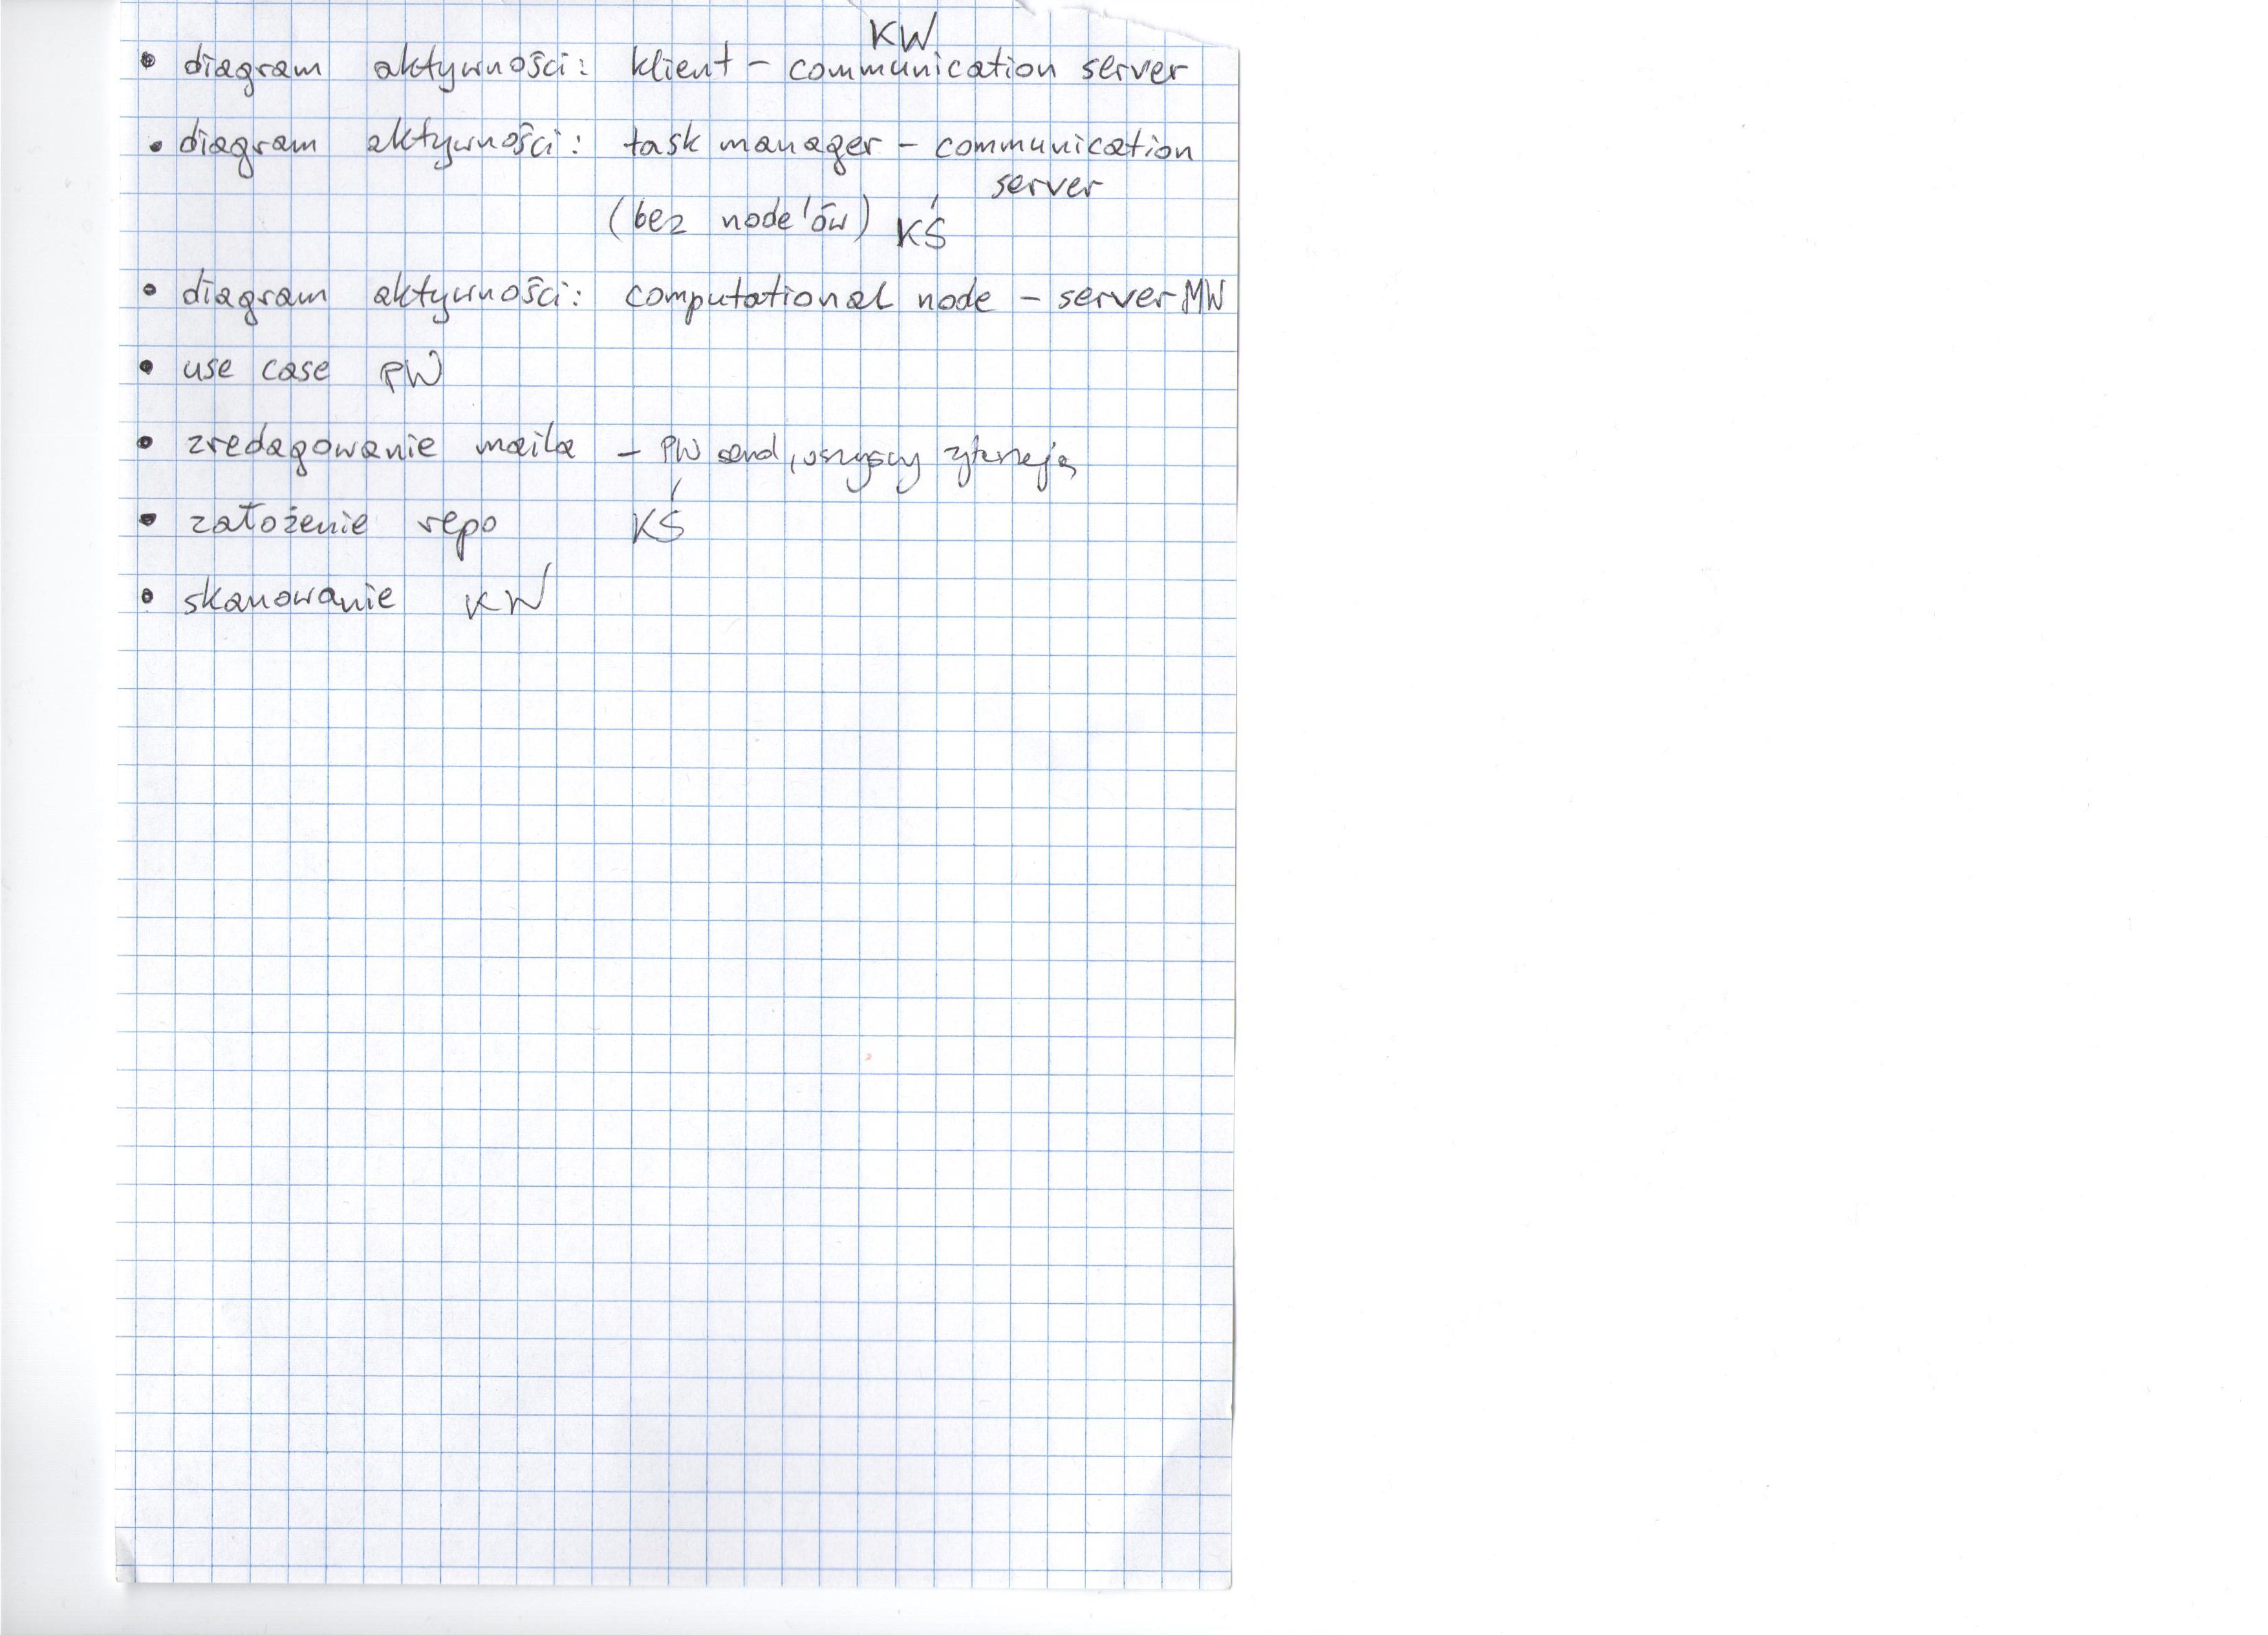 KW
• diagram aktywności: klient – communication server
• diagram aktywności: task manager – communication
server
(bez node'ów) KŚ
• diagram aktywności: computational node – server MW
• use case PW
• zredagowanie maila – PW send, wszyscy
• założenie repo KŚ
• skanowanie KW